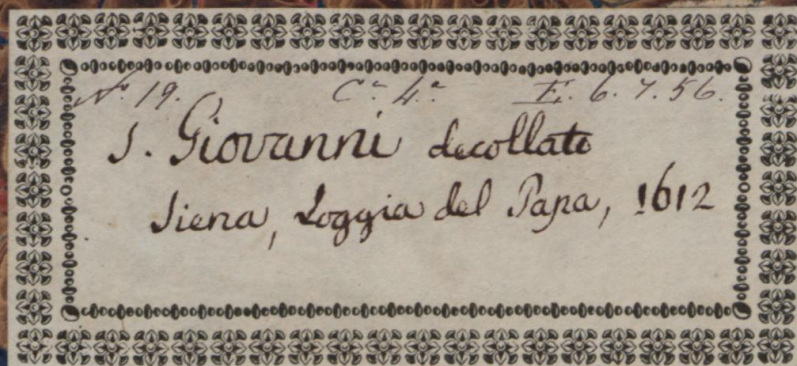 N.º 19. C.ª 4.ª E. 6. 7. 56.
S. Giovanni decollato
Siena, Loggia del Papa, 1612